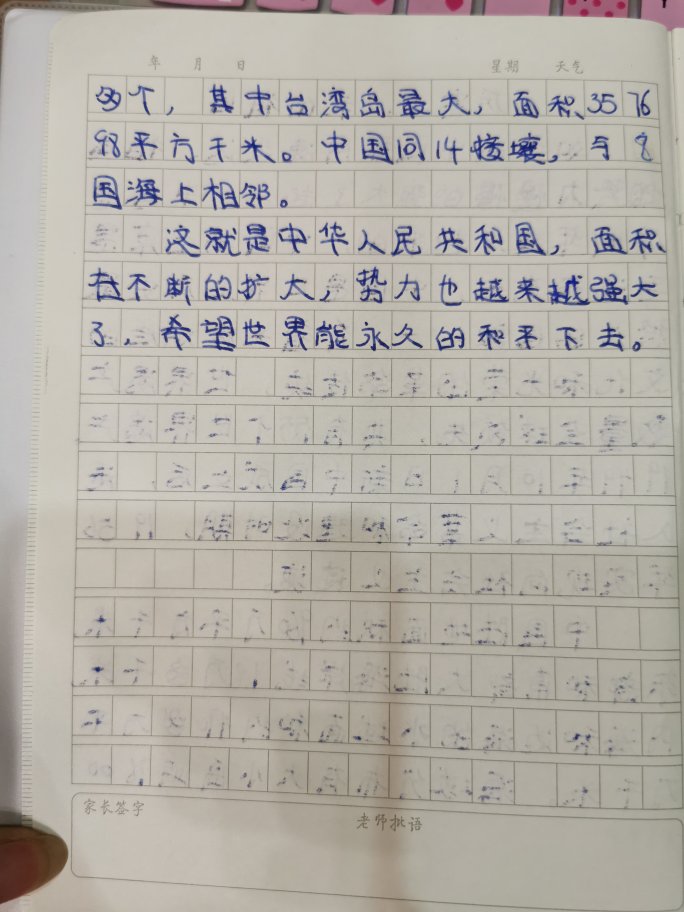 年 月 日 星期 天气
多个，其中台湾岛最大，面积3576
98平方千米。中国同14接壤，与8
国海上相邻。
这就是中华人民共和国，面积
在不断的扩大，势力也越来越强大
了，希望世界能永久的和平下去。
家长签字
老师批语